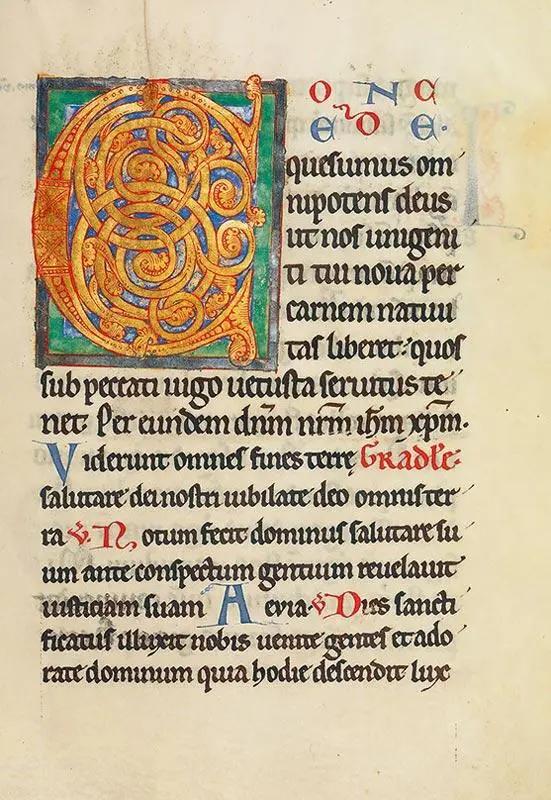 CONC
EDE.
quesumus om
nipotens deus
ut nos unigeni
ti tui noua per
carnem natiui
tas liberet: quos
sub peccati iugo uetusta seruitus te
net. Per eundem dnm nrm ihm xpm.
Viderunt omnes fines terrę Gradłe:
salutare dei nostri iubilate deo omnis ter
ra V. Notum fecit dominus salutare su
um ante conspectum gentium reuelauit
iusticiam suam Aeuia V Dies sancti
ficatus illuxit nobis uenite gentes et ado
rate dominum quia hodie descendit lux